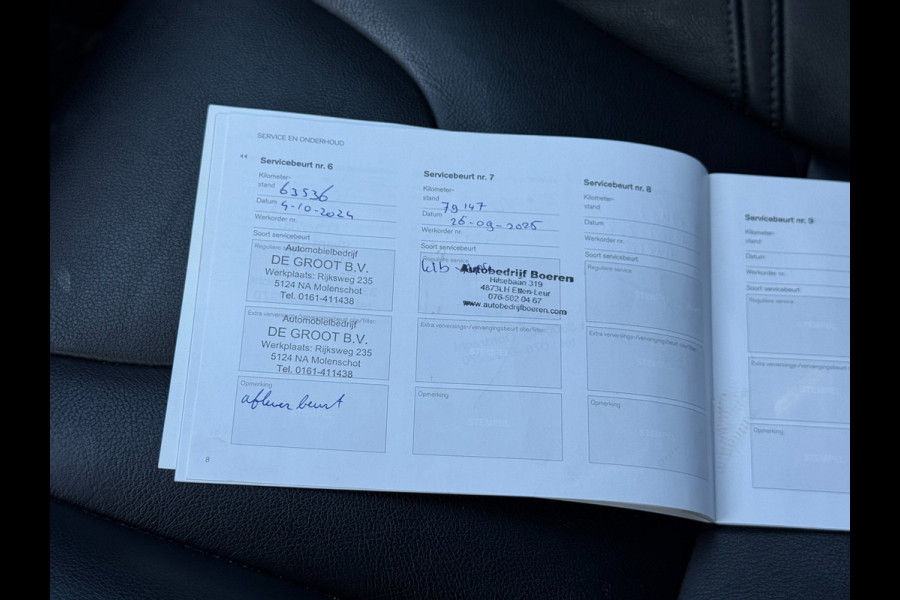 SERVICE EN ONDERHOUD
◄◄ Servicebeurt nr. 6
Kilometer-
stand 63536
Datum 4-10-2024
Werkorder nr.
Soort servicebeurt
Reguliere
Automobielbedrijf
DE GROOT B.V.
Werkplaats: Rijksweg 235
5124 NA Molenschot
Tel. 0161-411438
Extra
Automobielbedrijf
DE GROOT B.V.
Werkplaats: Rijksweg 235
5124 NA Molenschot
Tel. 0161-411438
Opmerking
aflever beurt
8
Servicebeurt nr. 7
Kilometer-
stand 79147
Datum 26-09-2025
Werkorder nr.
Soort servicebeurt
Reguliere service
Autobedrijf Boeren
Hilsebaan 319
4873LH Etten-Leur
076-502 04 67
www.autobedrijfboeren.com
Extra verversings-/vervangingsbeurt olie/filter:
Opmerking
Servicebeurt nr. 8
Kilometer-
stand
Datum
Werkorder nr.
Soort servicebeurt
Reguliere service
Extra verversings-/vervangingsbeurt olie/filter:
Opmerking
Servicebeurt nr. 9
Kilometer-
stand
Datum
Werkorder nr.
Soort servicebeurt
Reguliere service
Extra verversings-/vervangingsbeurt
Opmerking